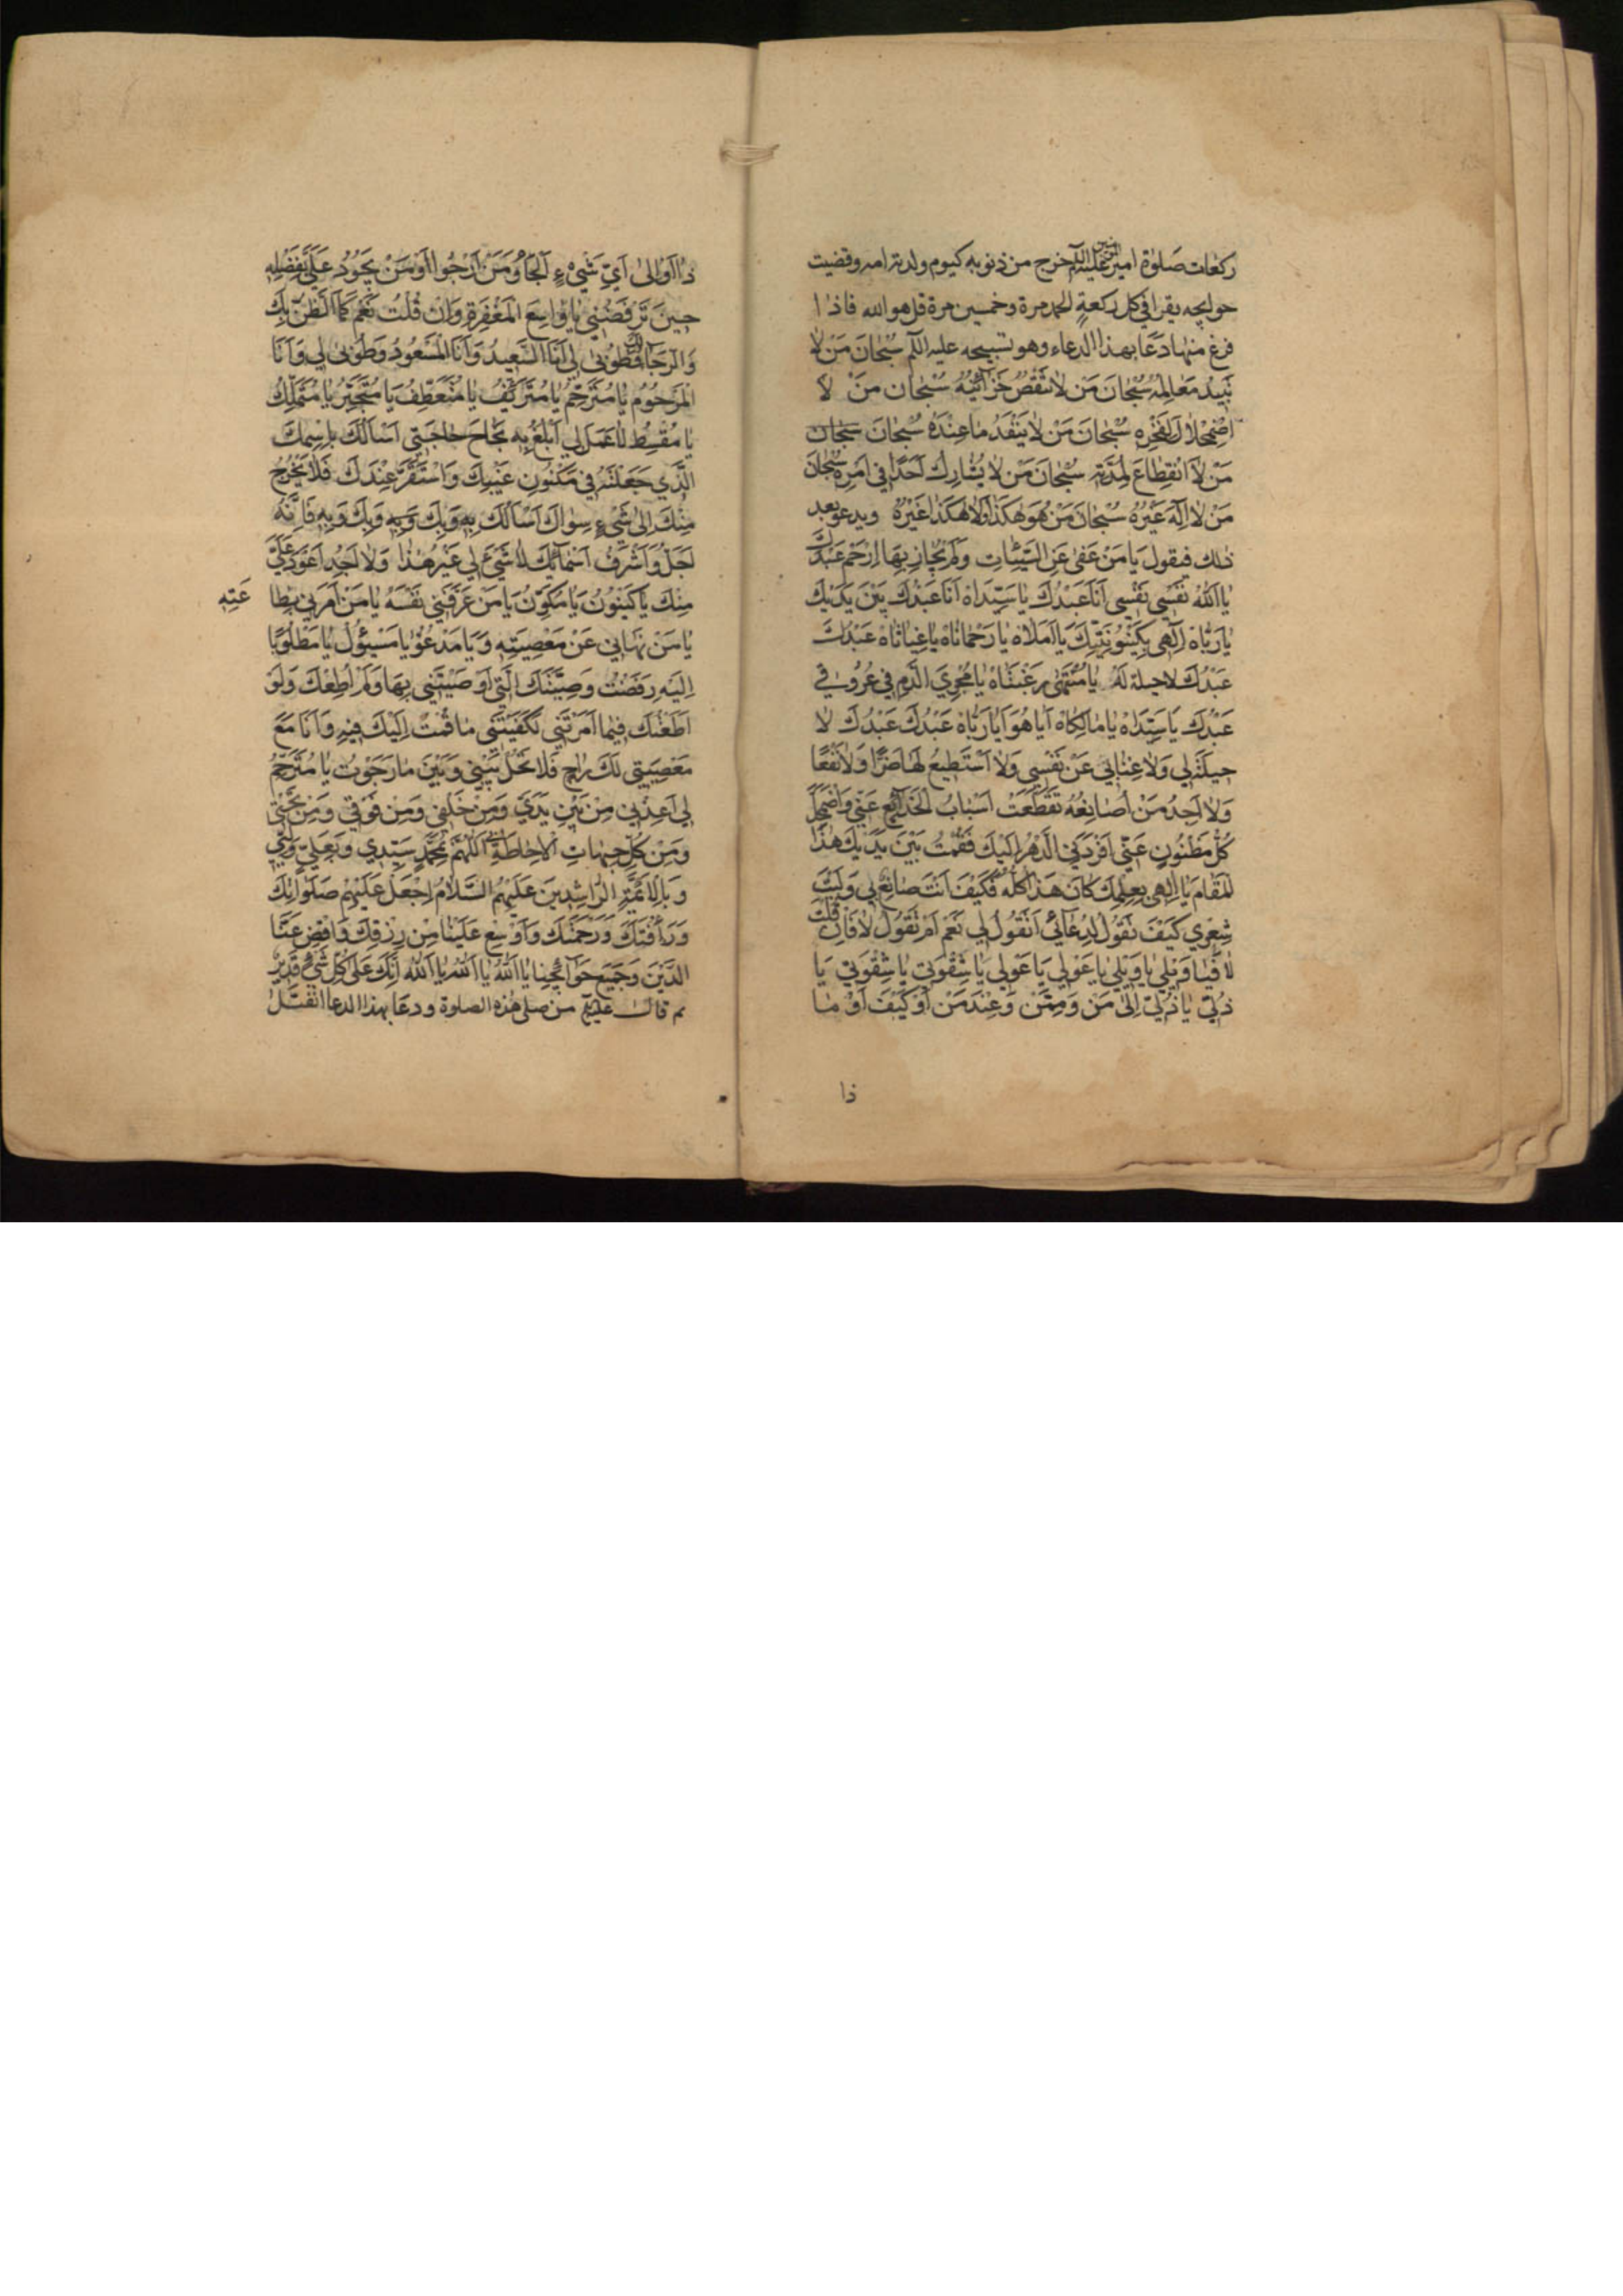 ركعات صلوة امير المؤمنين عليه السلم خرج من ذنوبه كيوم ولدته امه وقضيت
حوايجه يقرا في كل ركعةٍ الحمد مرة وخمسين مرة قل هو الله فاذا
فرغ منها دَعَا بهذا الدعاء وهو تسبيحه عليه السلم سُبْحَانَ مَنْ لَا
تَبِيدُ مَعَالِمُهُ سُبْحَانَ مَنْ لَا تَنْقُصُ خَزَائِنُهُ سُبْحَانَ مَنْ لَا
اضْمِحْلَالَ لِفَخْرِهِ سُبْحَانَ مَنْ لَا يَنْفَدُ مَا عِنْدَهُ سُبْحَانَ سبحان
مَنْ لَا انْقِطَاعَ لِمُدَّتِهِ سُبْحَانَ مَنْ لَا يُشَارِكُ أَحَدًا فِي أَمْرِهِ سُبْحَانَ
مَنْ لَا إِلَهَ غَيْرُهُ سُبْحَانَ مَنْ هُوَ هَكَذَا وَلَا هَكَذَا غَيْرُهُ ويدعو بعد
ذلك فيقول يَا مَنْ عَفَى عَنِ السَّيِّئَاتِ وَلَمْ يُجَازِ بِهَا ارْحَمْ عَبْدَكَ
يَا اَللهُ نَفْسِي نَفْسِي أَنَا عَبْدُكَ يَا سَيِّدَاهْ أَنَا عَبْدُكَ بَيْنَ يَدَيْكَ
يَا رَبَّاهْ إِلَهِي بِكَيْنُونِيَّتِكَ يَا أَمَلَاهْ يَا رَحْمَانَاهْ يَا غِيَاثَاهْ عَبْدُكَ
عَبْدُكَ لا حيلة لَهُ يَا مُنْتَهَى رَغْبَتَاهْ يَا مُجْرِيَ الدَّمِ فِي عُرُوقِي
عَبْدُكَ يَا سَيِّدَاهْ يَا مَالِكَاهْ أَيَا هُوَ أَيَا رَبَّاهْ عَبْدُكَ عَبْدُكَ لَا
حِيلَةَ لِي وَلَا غِنَا بِي عَنْ نَفْسِي وَلَا أَسْتَطِيعُ لَهَا ضَرًّا وَلَا نَفْعًا
وَلَا أَجِدُ مَنْ أُصَانِعُهُ تَقَطَّعَتْ أَسْبَابُ الْخَدَائِعِ عَنِّي وَاضْمَحَلَّ
كُلُّ مَظْنُونٍ عَنِّي أَفْرَدَنِي الدَّهْرُ إِلَيْكَ فَقُمْتُ بَيْنَ يَدَيْكَ هَذَا
الْمَقَامَ يَا إِلَهِي بِعِلْمِكَ كَانَ هَذَا كُلُّهُ فَكَيْفَ أَنْتَ صَانِعٌ بِي وَلَيْتَ
شِعْرِي كَيْفَ تَقُولُ لِدُعَائِي أَتَقُولُ لِي نَعَمْ أَمْ تَقُولُ لَا فَإِنْ قُلْتَ
لَا فَيَا وَيْلِي يَا وَيْلِي يَا عَوْلِي يَا عَوْلِي يَا شِقْوَتِي يَا شِقْوَتِي يَا
ذُلِّي يَا ذُلِّي إِلَى مَنْ وَمِمَّنْ وَعِنْدَ مَنْ أَوْ كَيْفَ أَوْ مَا
ذا
ذَا أَوْ إِلَى أَيِّ شَيْءٍ أَلْجَأُ وَمَنْ أَرْجُوا أَوْ مَنْ يَجُودُ عَلَيَّ بِفَضْلِهِ
حِينَ تَرْفَضُنِي يَا وَاسِعَ الْمَغْفِرَةِ وَإِنْ قُلْتَ نَعَمْ كَمَا الظَّنُّ بِكَ
وَالرَّجَاءُ لَكَ فَطُوبَى لِي أَنَا السَّعِيدُ وَأَنَا الْمَسْعُودُ وَطُوبَى لِي وَأَنَا
الْمَرْحُومُ يَا مُتَرَحِّمُ يَا مُتَرَئِّفُ يَا مُتَعَطِّفُ يَا مُتَجَبِّرُ يَا مُتَمَلِّكُ
يَا مُقْسِطُ لَا عَمَلَ لِي أَبْلُغُ بِهِ نَجَاحَ حَاجَتِي أَسْأَلُكَ بِاسْمِكَ
الَّذِي جَعَلْتَهُ فِي مَكْنُونِ غَيْبِكَ وَاسْتَقَرَّ عِنْدَكَ فَلَا يَخْرُجُ
مِنْكَ إِلَى شَيْءٍ سِوَاكَ أَسْأَلُكَ بِهِ وَبِكَ وَبِهِ وَبِكَ وَبِهِ فَإِنَّهُ
أَجَلُّ وَأَشْرَفُ أَسْمَائِكَ لَا شَيْءَ لِي غَيْرُ هَذَا وَلَا أَجِدُ أَعْوَدَ عَلَيَّ
مِنْكَ يَا كَيْنُونُ يَا مُكَوِّنُ يَا مَنْ عَرَّفَنِي نَفْسَهُ يَا مَنْ أَمَرَنِي بِطَا عَتِهِ
يَا مَنْ نَهَانِي عَنْ مَعْصِيَتِهِ وَيَا مَدْعُوُّ يَا مَسْئُولُ يَا مَطْلُوبًا
إِلَيْهِ رَفَضْتُ وَصِيَّتَكَ الَّتِي أَوْصَيْتَنِي بِهَا وَلَمْ أُطِعْكَ وَلَوْ
أَطَعْتُكَ فِيمَا أَمَرْتَنِي لَكَفَيْتَنِي مَا قُمْتُ إِلَيْكَ فِيهِ وَأَنَا مَعَ
مَعْصِيَتِي لَكَ رَاجٍ فَلَا تَحُلْ بَيْنِي وَبَيْنَ مَا رَجَوْتُ يَا مُتَرَحِّمُ
لِي أَعِذْنِي مِنْ بَيْنِ يَدَيَّ وَمِنْ خَلْفِي وَمِنْ فَوْقِي وَمِنْ تَحْتِي
وَمِنْ كُلِّ جِهَاتِ الْإِحَاطَةِ بِي اَللَّهُمَّ بِمُحَمَّدٍ سَيِّدِي وَبِعَلِيٍّ وَلِيِّي
وَبِالْأَئِمَّةِ الرَّاشِدِينَ عَلَيْهِمُ السَّلَامُ اجْعَلْ عَلَيْهِمْ صَلَوَاتِكَ
وَرَأْفَتَكَ وَرَحْمَتَكَ وَأَوْسِعْ عَلَيْنَا مِنْ رِزْقِكَ وَاقْضِ عَنَّا
الدَّيْنَ وَجَمِيعَ حَوَائِجِنَا يَا اَللهُ يَا اَللهُ يَا اَللهُ إِنَّكَ عَلَى كُلِّ شَيْءٍ قَدِيرٌ
ثم قال عليه من صلى هذه الصلوة ودعا بهذا الدعا انفتل